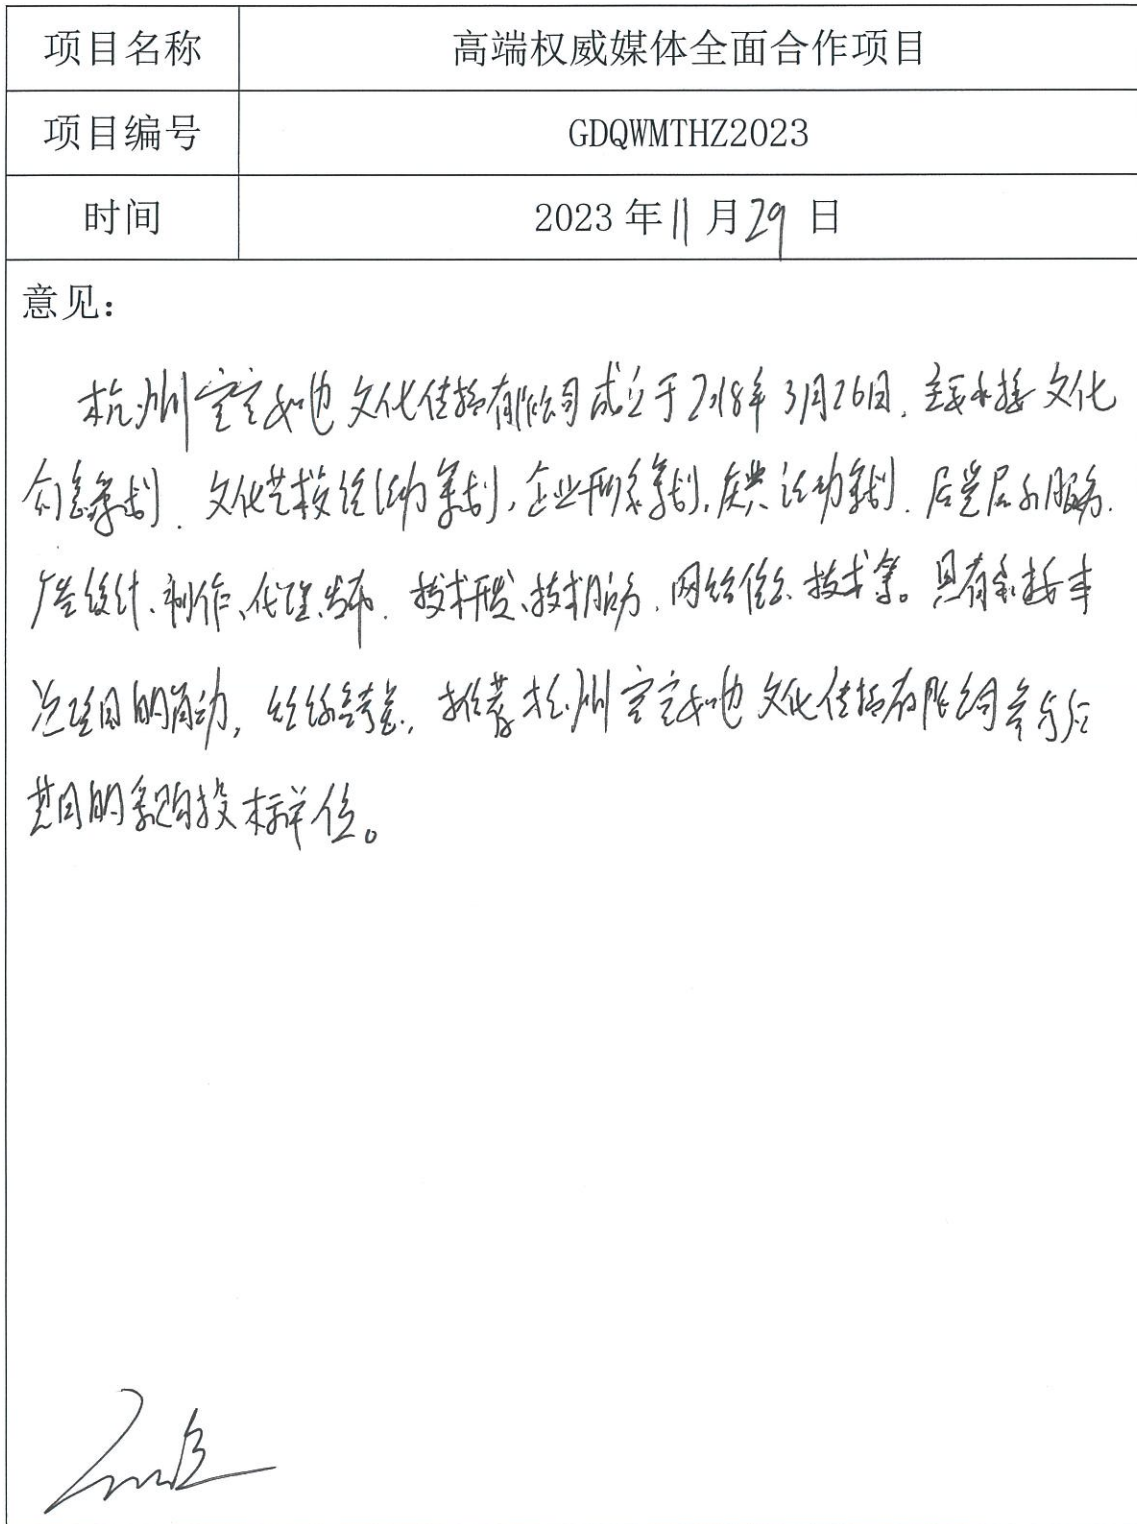 项目名称 高端权威媒体全面合作项目
项目编号 GDQWMTHZ2023
时间 2023年11月29日
意见：
杭州空空如也文化传播有限公司成立于2018年3月26日，主要承接文化
创意策划、文化艺术交流活动策划，企业形象策划，庆典活动策划、展览展示服务、
广告设计、制作、代理、发布、技术开发、技术服务、网络信息技术等。具有承接本
次项目的能力，经综合考虑，推荐杭州空空如也文化传播有限公司参与后
项目的采购投标单位。